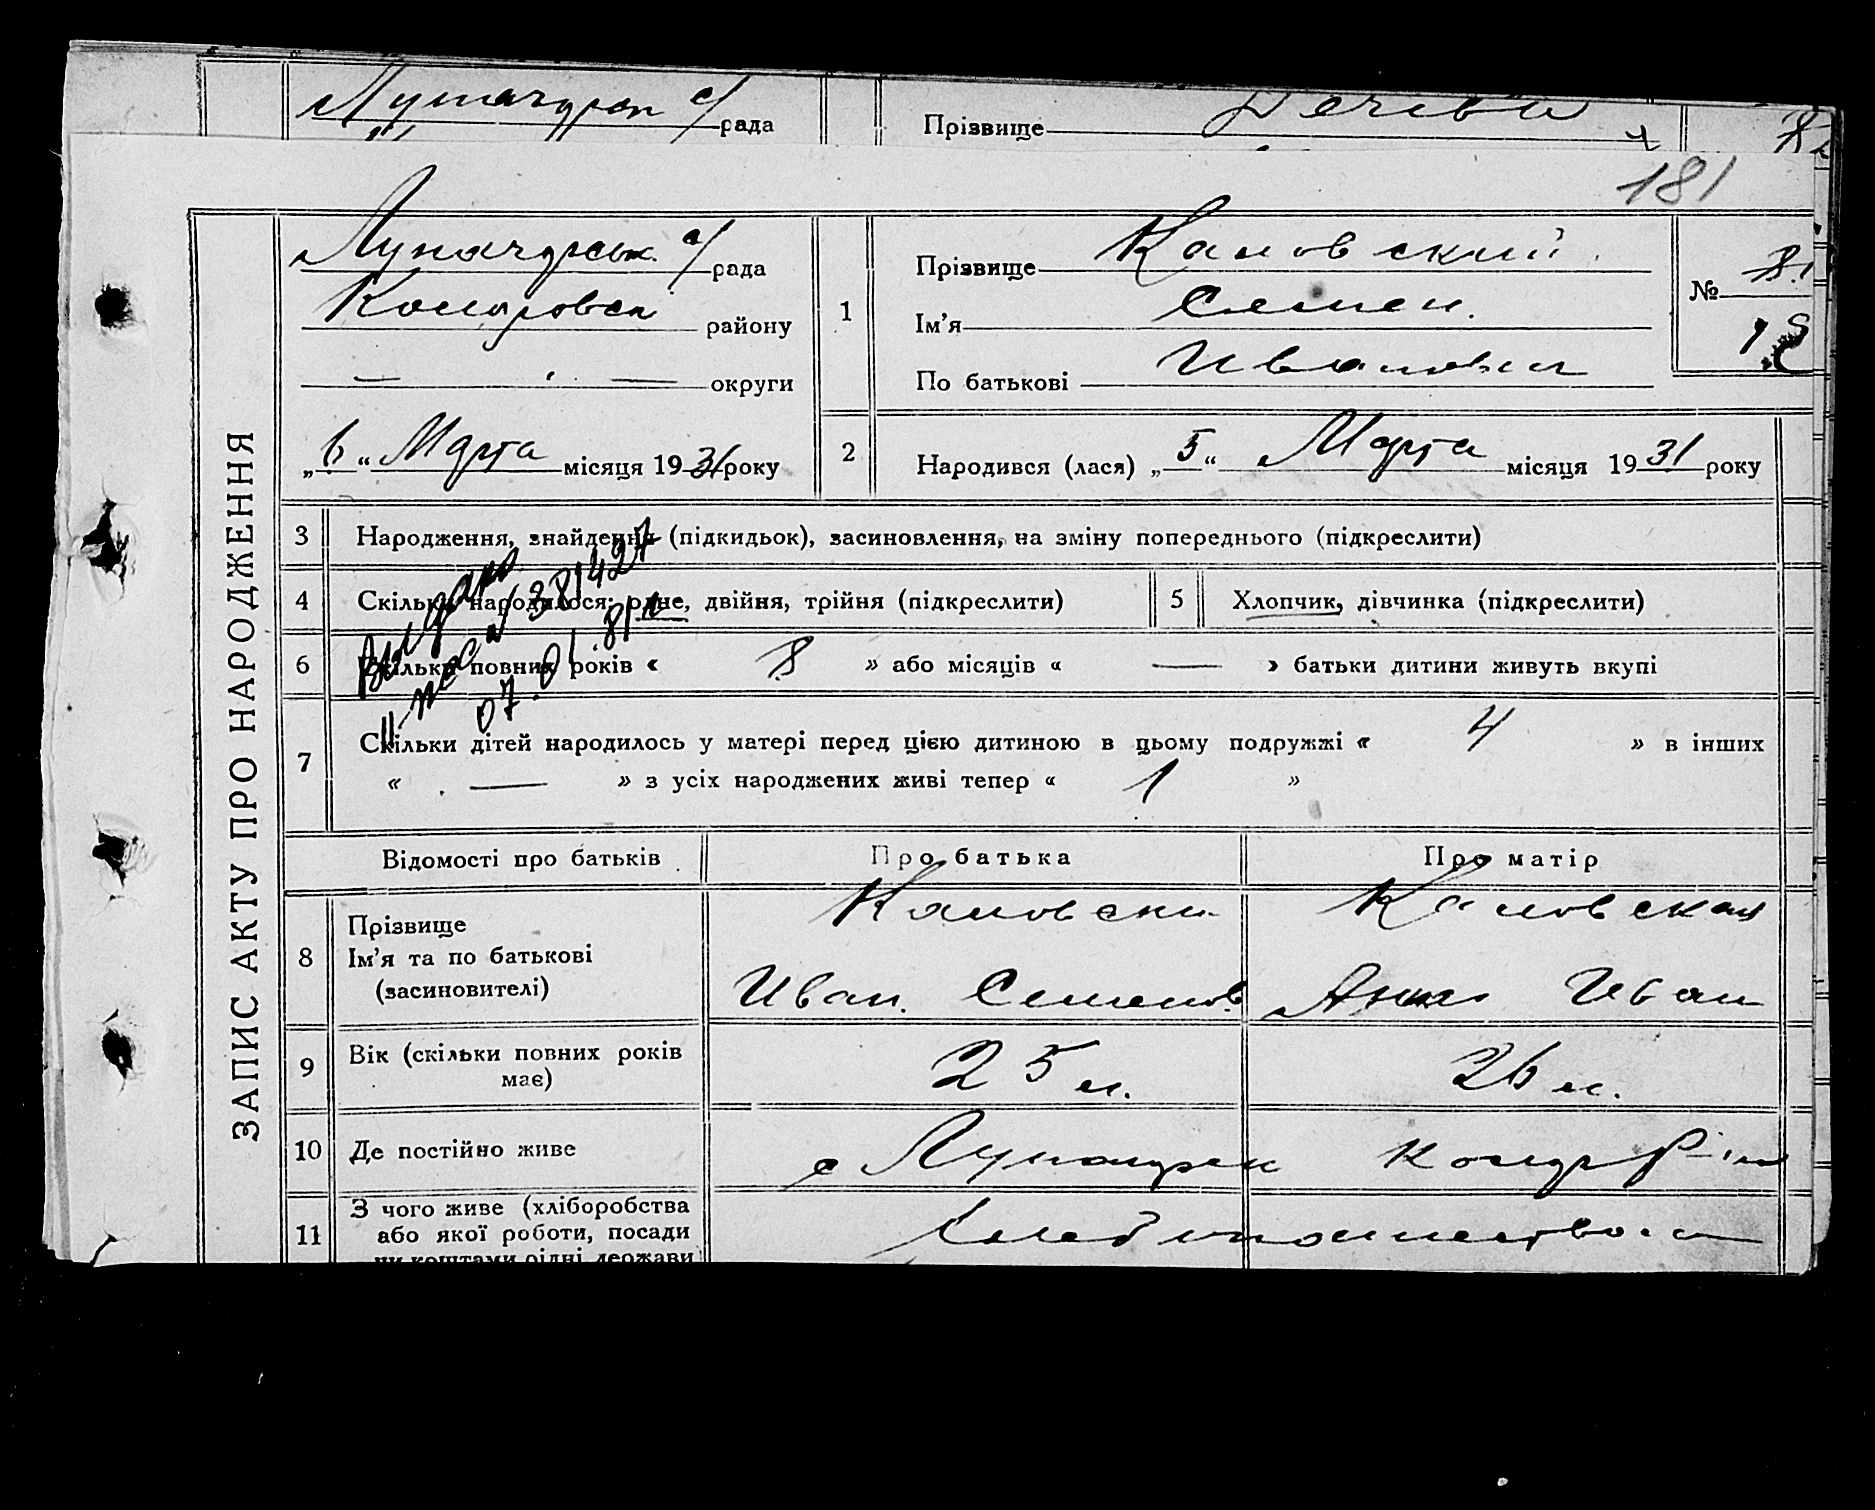 рада
Прізвище
181
Луначарськ. с/рада
Прізвище Кановский
№
18
району
1
Ім'я Семен.
— округи
По батькові Иванович
„6“ Марта місяця 1931 року
2
Народився (лася) „5“ Марта місяця 1931 року
ЗАПИС АКТУ ПРО НАРОДЖЕННЯ
3 Народження, знайдення (підкидьок), засиновлення, на зміну попереднього (підкреслити)
4 Скільки народилося: одне, двійня, трійня (підкреслити)
5 Хлопчик, дівчинка (підкреслити)
Выдано
381427
07.01.81г
6 Скільки повних років « 8 » або місяців « — » батьки дитини живуть вкупі
7 Скільки дітей народилось у матері перед цією дитиною в цьому подружжі « 4 » в інших
« — » з усіх народжених живі тепер « 1 »
Відомості про батьків
Про батька
Про матір
8 Прізвище
Ім'я та по батькові
(засиновителі)
Кановски
Иван. Семенов.
Кановская
Анна Иван
9 Вік (скільки повних років
має)
25 л.
26 л.
10 Де постійно живе
с
11 З чого живе (хліборобства
або якої роботи, посади
чи коштами рідні держави